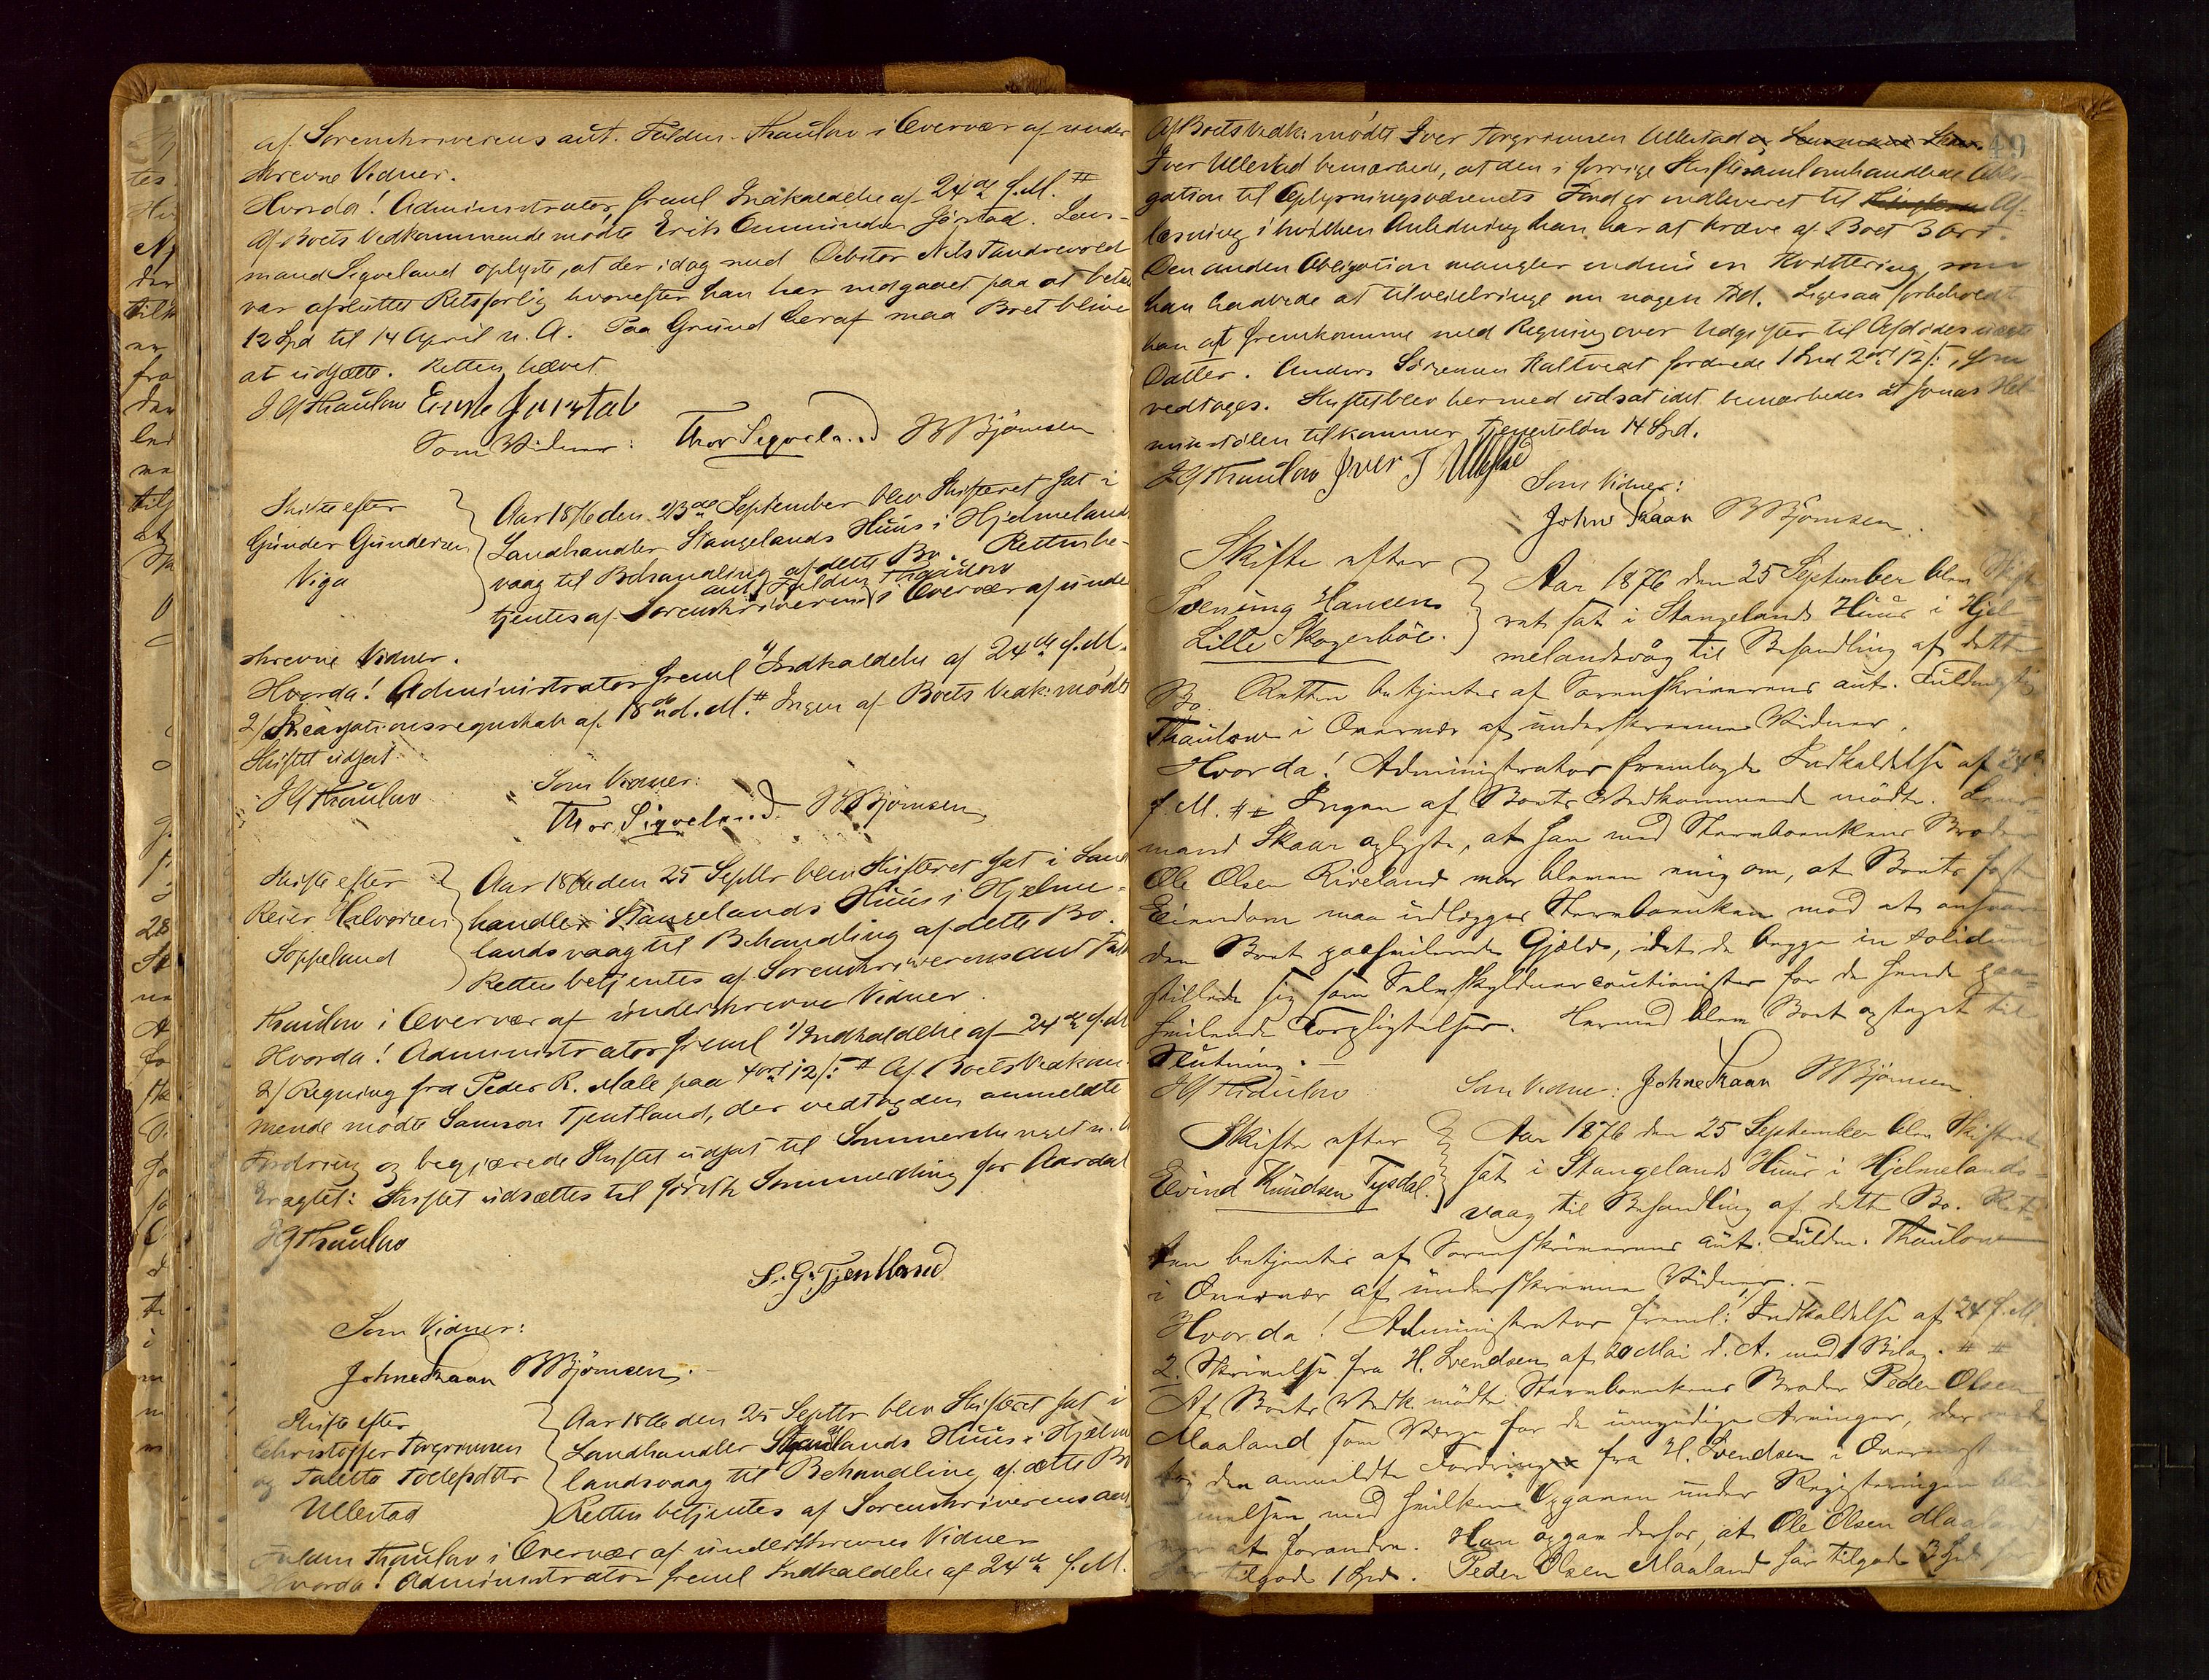 af Sorenskriverens aut. Fuldm. Thaulow i Overvær af under
skrevne Vidner.
Hvorda! Administrator freml Indkaldelse af 24de f.M. #
Af Boets Vedkommende mødte Erik Ommundsen Jørstad. Lens-
mand Sigveland oplyste, at der idag med Debitor Nels Tandrevold
var afsluttet Retsforlig hvorefter han har indgaaet paa at betale
12 Spd til 14 April n. A. Paa Grund heraf maa Boet blive
at udsætte. Retten hævet
J G Thaulow
Som Vidner: Thor Sigveland B Bjørnsen
Skifte efter
Gunder Gundersen
Viga
Aar 1876 den 23de September blev Skifteret sat i
Landhandler Stangelands Huus i Hjelmelands
vaag til Behandling af dette Bo. Retten be-
tjentes af Sorenskriverens aut. Fuldm Thaulow i Overvær af unde
skrevne Vidner.
Hvorda! Administrator freml 1/ Indkaldelse af 24de f.M.
2/ Reagationsregnskab af 18de d.M. # Ingen af Boets Vedk: mødte
Skiftet udsat.
J G Thaulow
Som Vidner:
Thor Sigveland B Bjørnsen
Skifte efter
Reier Halvorsen
Soppeland
Aar 1876 den 25 Septbr blev Skifteret sat i Land
handler Stangelands Huus i Hjelme-
landsvaag til Behandling af dette Bo.
Retten betjentes af Sorenskriverens aut Fuld
Thaulow i Overvær af underskrevne Vidner.
Hvorda! Administrator freml 1/ Indkaldelse af 24de f.M
2/ Regning fra Peder R. Mæle paa 4 ort 12 s: # Af Boets Vedkom
mende mødte Samson Tjentland, der vedtog den anmeldte
Fordring og begjærede Skiftet udsat til Sommerthinget n. A
Eragtet: Skiftet udsættes til første Sommerting for Aardal
J G Thaulow
S. G. Tjentland
Som Vidner:
John Skaar B Bjørnsen.
Skifte efter
Christoffer Torgrimsen
og Taletta Tollefsdtr
Ullestad
Aar 1876 den 25 Septbr blev Skifteret sat i
Landhandler Stangelands Huus i Hjelme
landsvaag til Behandling af dette Bo
Retten betjentes af Sorenskriverens aut
Fuldm Thaulow i Overvær af underskrevne Vidner
Hvorda! Administrator freml Indkaldelse af 24de f.M.
49
Af Boets Vedk: mødte Iver Torgrimsen Ullestad og
Iver Ullestad bemærkede, at den i forrige Skiftesaml omhandlede Obli-
gation til Oplysningsvæsenets Fond er indleveret til Af-
læsning i hvilken Anledning han har at kræve af Boet 3 Ort.
Den anden Obligation mangler endnu en Kvittering, som
han lovede at tilveiebringe om nogen Tid. Ligesaa forbeholdt
han at fremkomme med Regning over Udgifter til Afdødes
Datter. Anders Sørensen Haltveit fordrede 1 Spd 2 ort 12 s:, som
vedtoges. Skiftet blev hermed udsat idet bemærkedes at Jonas Hel
tilkommer Tjenesteløn 14 Spd.
J G Thaulow Iver T Ullestad
Som Vidner:
John Skaar B Bjørnsen.
Skifte efter
Svenung Hansen
Lille Skogerbøe.
Aar 1876 den 25 September blev Skifte-
ret sat i Stangelands Huus i Hjel-
melandsvåg til Behandling af dette
Bo. Retten betjentes af Sorenskriverens aut. Fuldmægtig
Thaulow i Overvær af underskrevne Vidner.
Hvorda! Administrator fremlagde Indkaldelse af 24de
f. M. # Ingen af Boets Vedkommende mødte. Lens-
mand Skaar oplyste, at han med Stervboenkens Broder
Ole Olsen Riveland var bleven enig om, at Boets faste
Eiendom maa udlægges Stervboenken mod at ansvare
den Boet paahvilende Gjæld, idet de begge in solidum
stillede sig som Selvskyldnercautionister for de hende paa-
hvilende Forpligtelser. Hermed blev Boet optaget til
Slutning.
J G Thaulow Som Vidner: John Skaar B Bjørnsen
Skifte efter
Eivind Knudsen Tysdal.
Aar 1876 den 25 September blev Skifteret
sat i Stangelands Huus i Hjelmelands-
vaag til Behandling af dette Bo. Ret-
ten betjentes af Sorenskriverens aut. Fuldm. Thaulow
i Overvær af underskrevne Vidner.
Hvorda! Administrator freml: 1/ Indkaldelse af 24 f. M.
2. Skrivelse fra H. Svendsen af 20 Mai d. A. med 1 Bilag. # #
Af Boets Vedk. mødte Stervboenkens Broder Peder Olsen
Maaland som Værge for de umyndige Arvinger, der
tog den anmeldte Fordring fra H. Svendsen i Overensst
melsen med hvilken Opgaven under Registreringen
at forandre. Han opgav derhos, at Ole Olsen Maaland
har tilgode 1 Spd. Peder Olsen Maaland har tilgode 3 Spd